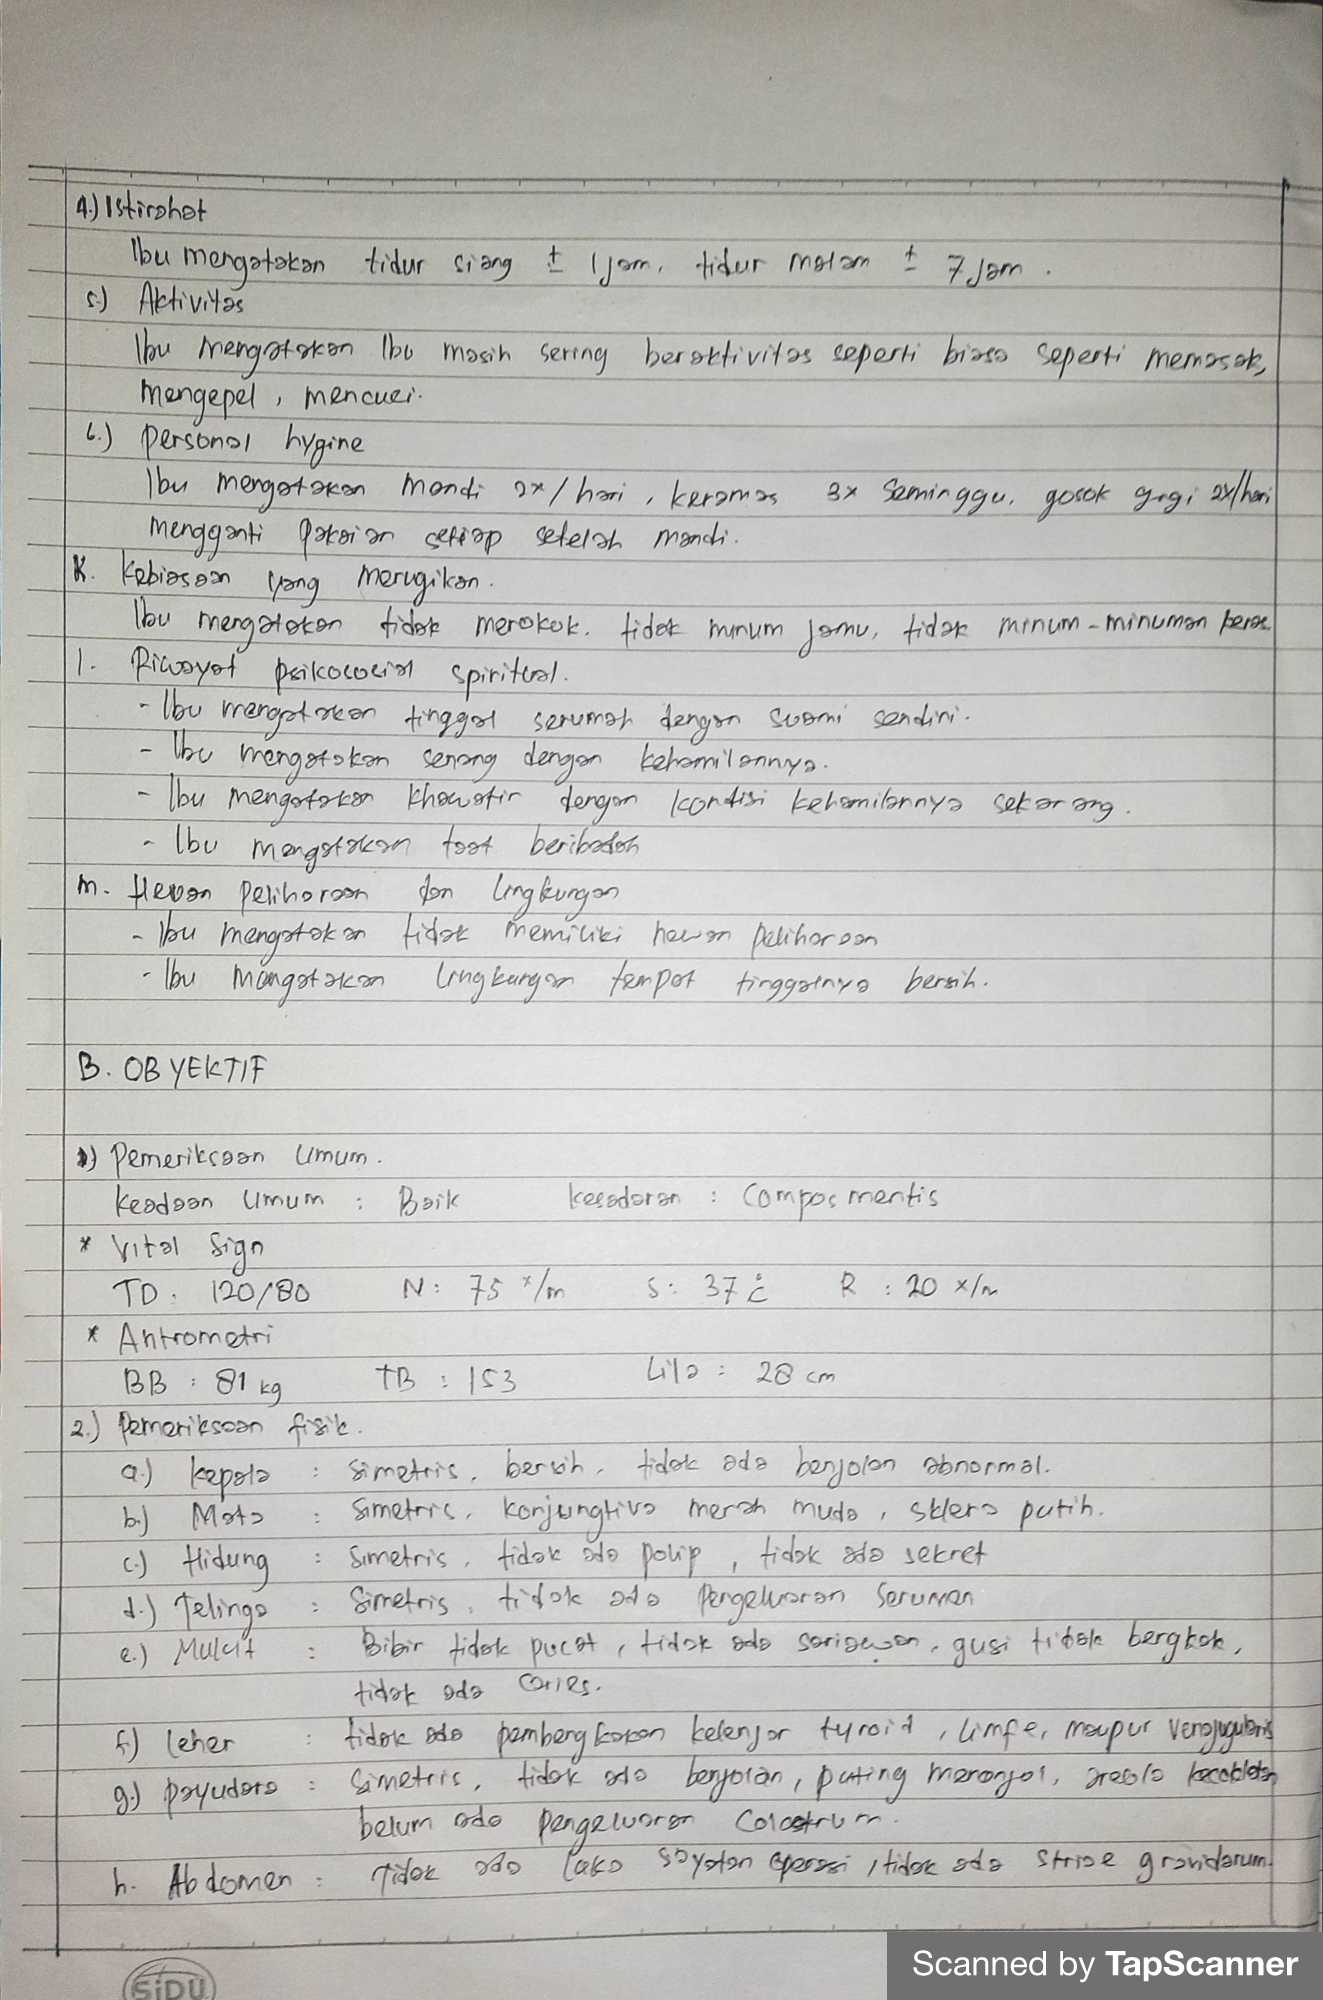 4.) Istirahat
Ibu mengatakan tidur siang ± 1 jam, tidur malam ± 7 jam .
5.) Aktivitas
Ibu mengatakan Ibu masih sering beraktivitas seperti biasa seperti memasak,
mengepel , mencuci.
6.) Personal hygine
Ibu mengatakan mandi 2x / hari , keramas 3x seminggu, gosok gigi 2x/hari
mengganti pakaian setiap setelah mandi.
K. Kebiasaan yang merugikan.
Ibu mengatakan tidak merokok. tidak minum jamu, tidak minum-minuman keras
l. Riwayat psikososial spiritual.
- Ibu mengatakan tinggal serumah dengan suami sendiri.
- Ibu mengatakan senang dengan kehamilannya.
- Ibu mengatakan khawatir dengan kondisi kehamilannya sekarang.
- Ibu mengatakan taat beribadah
M. Hewan peliharaan dan lingkungan
- Ibu mengatakan tidak memiliki hewan peliharaan
- Ibu mengatakan lingkungan tempat tinggalnya bersih.
B. OBYEKTIF
1) Pemeriksaan Umum.
Keadaan Umum : Baik Kesadaran : Compos mentis
* Vital Sign
TD : 120/80 N : 75 x/m S : 37 °c R : 20 x/m
* Antrometri
BB : 81 kg TB : 153 Lila : 28 cm
2.) Pemeriksaan fisik.
a.) Kepala : Simetris, bersih, tidak ada benjolan abnormal.
b.) Mata : Simetris, konjungtiva merah muda, sklera putih.
c.) Hidung : Simetris, tidak ada polip , tidak ada sekret
d.) Telinga : Simetris, tidak ada pengeluaran Serumen
e.) Mulut : Bibir tidak pucat, tidak ada sariawan, gusi tidak bengkak,
tidak ada caries.
f.) Leher : tidak ada pembengkakan kelenjar tyroid, limfe, maupun venajugularis
g.) payudara : Simetris, tidak ada benjolan, puting menonjol, areola kecoklatan
belum ada pengeluaran Colostrum.
h. Abdomen : Tidak ada luka sayatan operasi, tidak ada striae gravidarum.
SiDU
Scanned by TapScanner